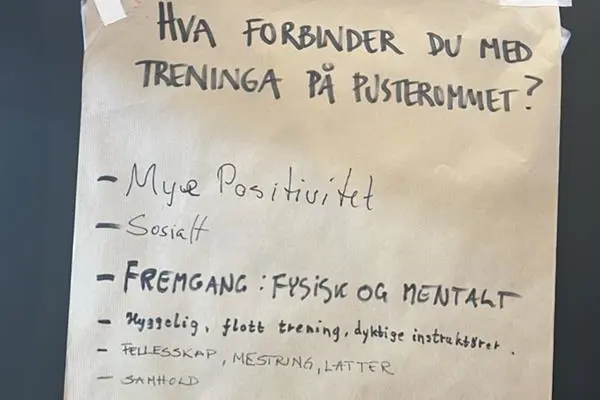 HVA FORBINDER DU MED
TRENINGA PÅ PUSTEROMMET?
- Mye Positivitet
- Sosialt
- FREMGANG: FYSISK OG MENTALT
- Hyggelig, flott trening, dyktige instruktører.
- FELLESSKAP, MESTRING, LATTER
- SAMHOLD